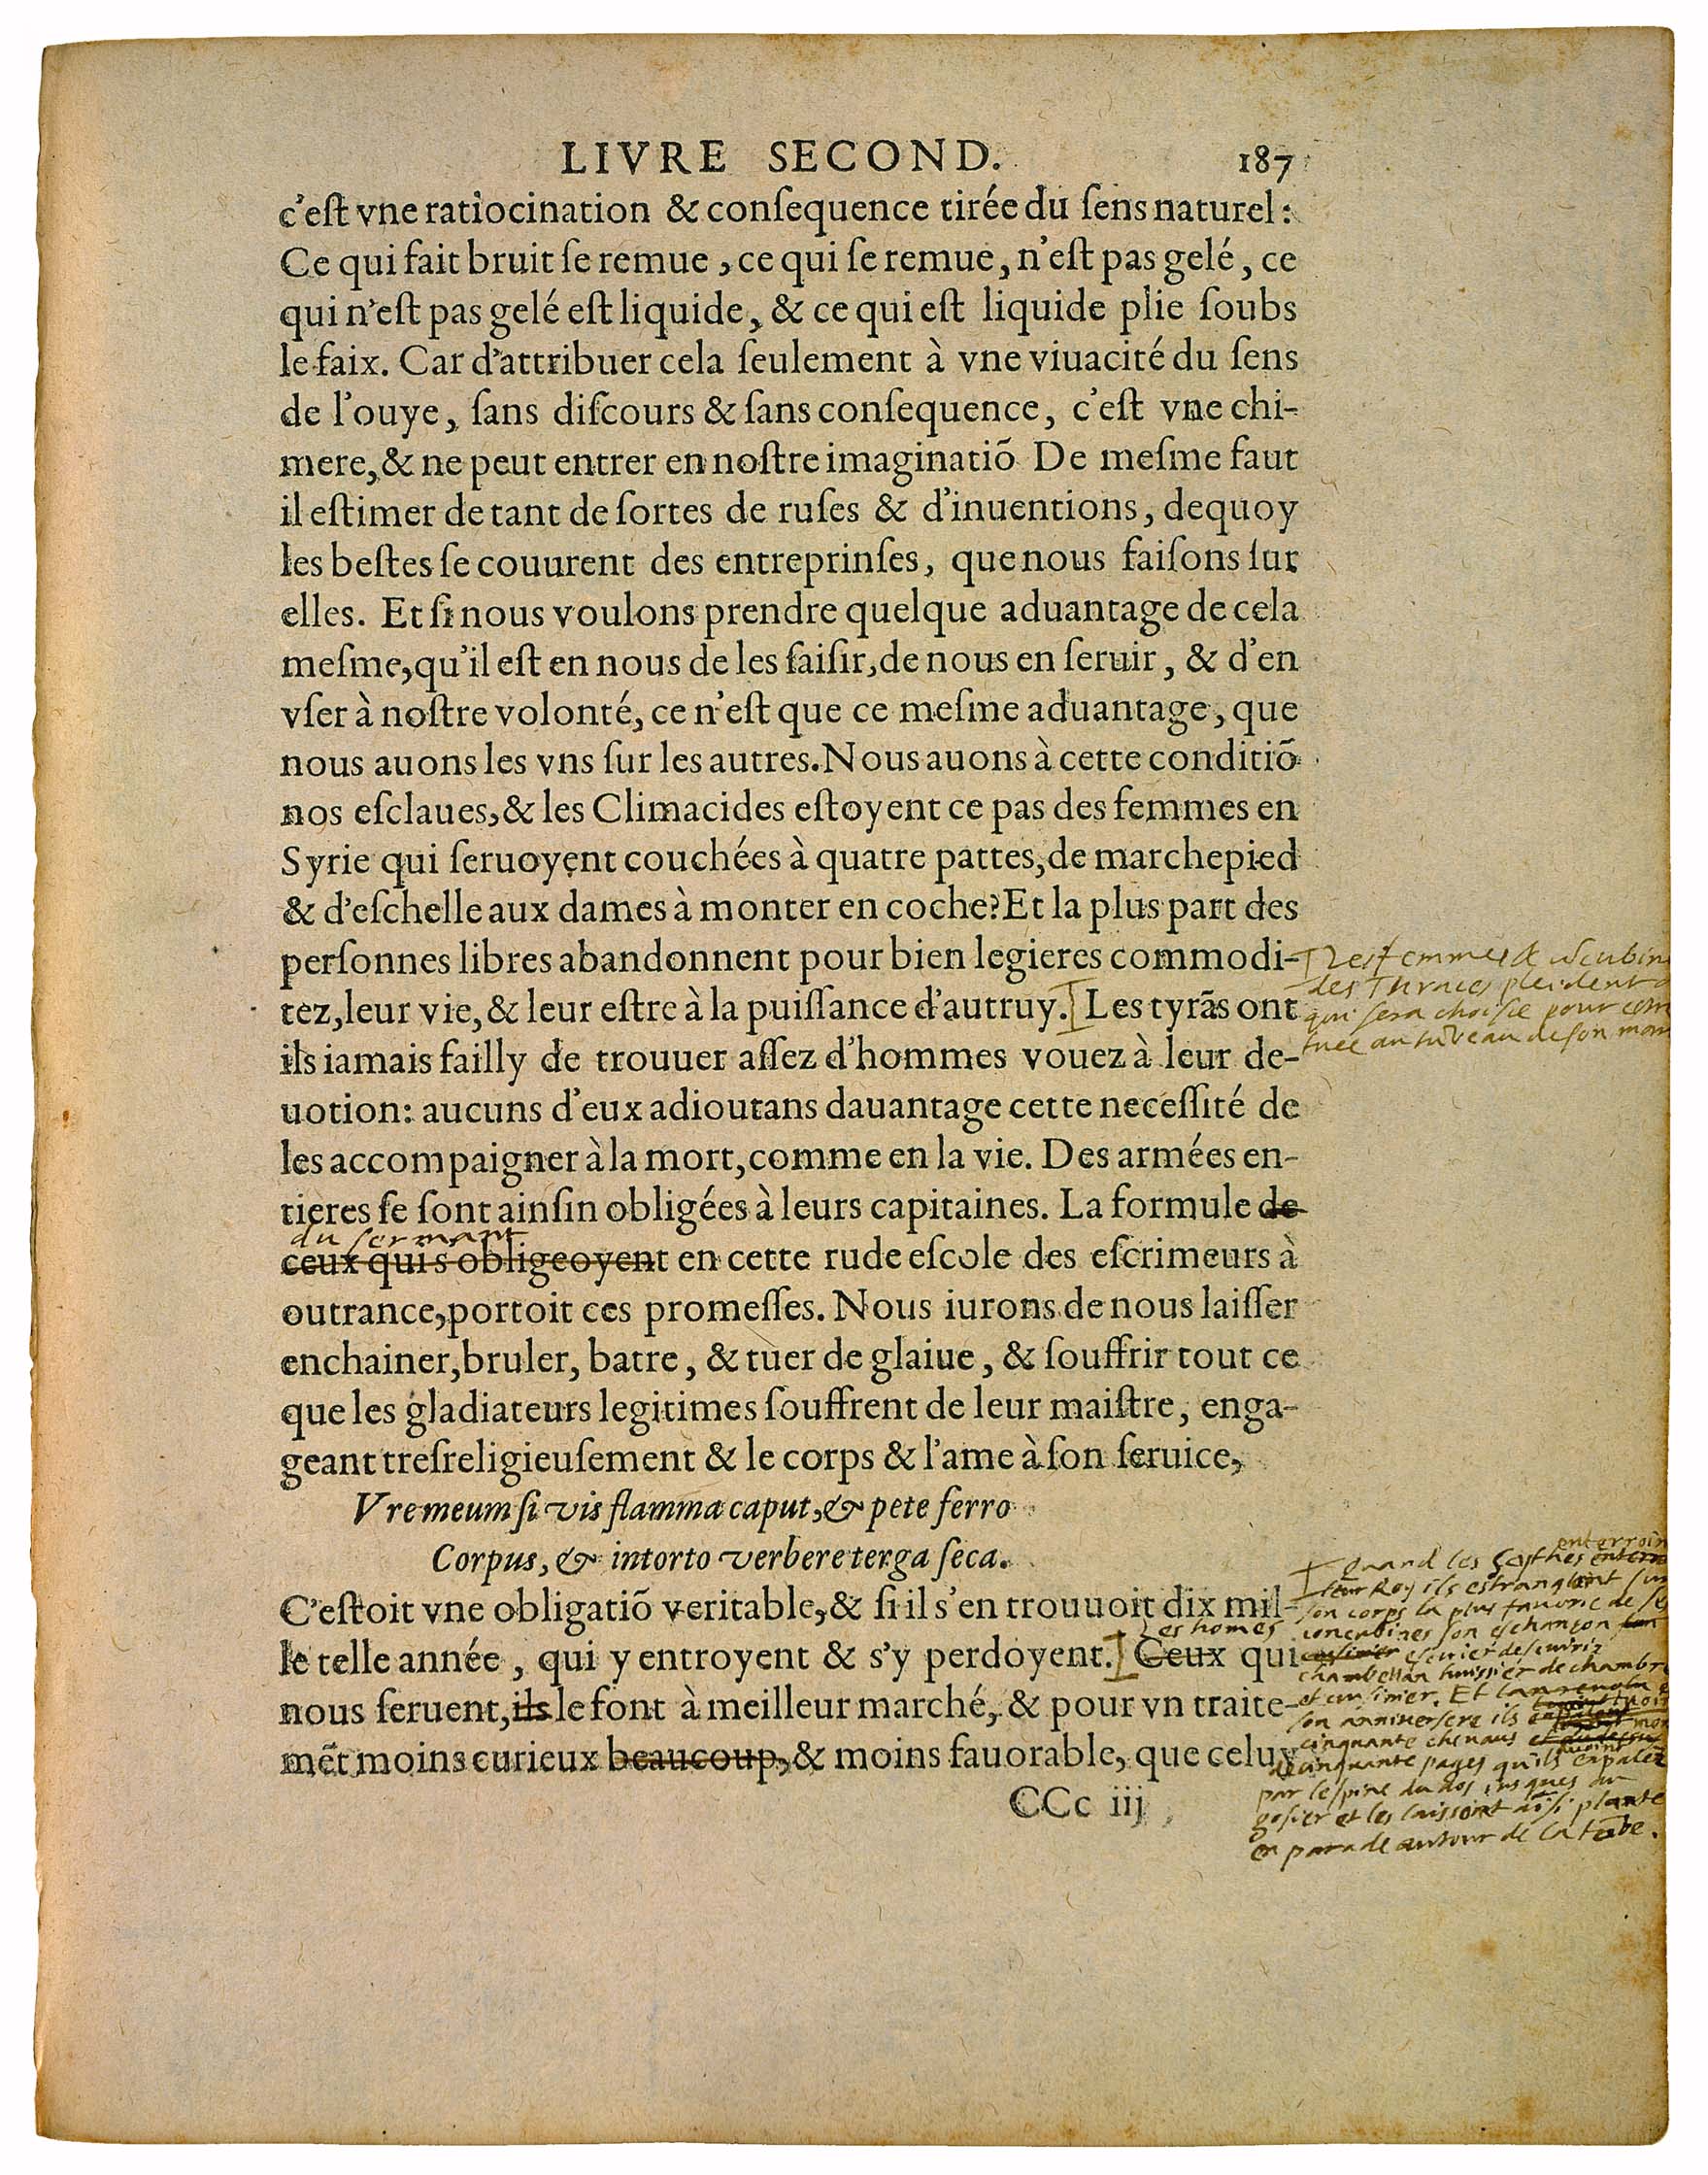 LIVRE SECOND. 187
c'eſt vne ratiocination & conſequence tirée du ſens naturel:
Ce qui fait bruit ſe remue, ce qui ſe remue, n'eſt pas gelé, ce
qui n'eſt pas gelé eſt liquide, & ce qui eſt liquide plie ſoubs
le faix. Car d'attribuer cela ſeulement à vne viuacité du ſens
de l'ouye, ſans diſcours & ſans conſequence, c'eſt vne chi-
mere, & ne peut entrer en noſtre imaginatiõ De meſme faut
il eſtimer de tant de ſortes de ruſes & d'inuentions, dequoy
les beſtes ſe couurent des entreprinſes, que nous faiſons ſur
elles. Et ſi nous voulons prendre quelque aduantage de cela
meſme, qu'il eſt en nous de les ſaiſir, de nous en ſeruir, & d'en
vſer à noſtre volonté, ce n'eſt que ce meſme aduantage, que
nous auons les vns ſur les autres. Nous auons à cette conditiõ
nos eſclaues, & les Climacides eſtoyent ce pas des femmes en
Syrie qui ſeruoyent couchées à quatre pattes, de marchepied
& d'eſchelle aux dames à monter en coche? Et la plus part des
perſonnes libres abandonnent pour bien legieres commodi-
tez, leur vie, & leur eſtre à la puiſſance d'autruy. Les tyrãs ont
ils iamais failly de trouuer aſſez d'hommes vouez à leur de-
uotion: aucuns d'eux adioutans dauantage cette neceſſité de
les accompaigner à la mort, comme en la vie. Des armées en-
tieres ſe ſont ainſin obligées à leurs capitaines. La formule de
du ſermant
ceux qui s'obligeoyent en cette rude eſcole des eſcrimeurs à
outrance, portoit ces promeſſes. Nous iurons de nous laiſſer
enchainer, bruler, batre, & tuer de glaiue, & ſouffrir tout ce
que les gladiateurs legitimes ſouffrent de leur maiſtre, enga-
geant treſreligieuſement & le corps & l'ame à ſon ſeruice,
Vre meum ſi vis flamma caput, & pete ferro
Corpus, & intorto verbere terga ſeca.
C'eſtoit vne obligatiõ veritable, & ſi il s'en trouuoit dix mil-
Les homes
le telle année, qui y entroyent & s'y perdoyent. Ceux qui
nous ſeruent, ils le font à meilleur marché, & pour vn traite-
mẽt moins curieux beaucoup, & moins fauorable, que celuy
CCc iij
Les femmes &
des Thraces pleident
qui sera choisie pour
tuee au tũbeau de son
enterroin
Quand les Scythes
leur Roy ils estrangloint
son corps la plus favorie de
concubines son eschançon
escuier descuirie
chambellan huissier de chambre
et cusinier. Et
son anniversere ils
cinquante chevaus
de cinquante pages qu'ils
par lespine du dos iusques au
gosier et les laissoint aĩsi plante
en parade autour de la tũbe.